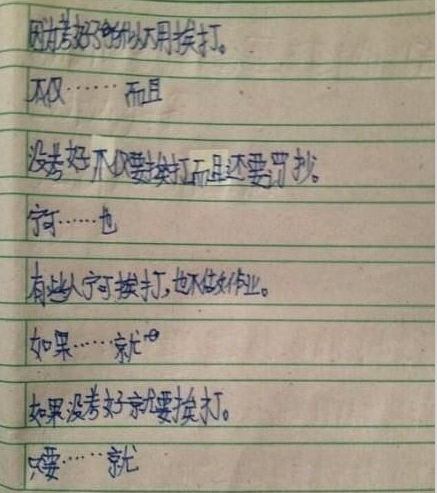 因为考好了所以不用挨打。
不仅……而且
没考好不仅要挨打而且还要罚抄。
宁可……也
有些人宁可挨打，也不做好作业。
如果……就
如果没考好就要挨打。
只要……就